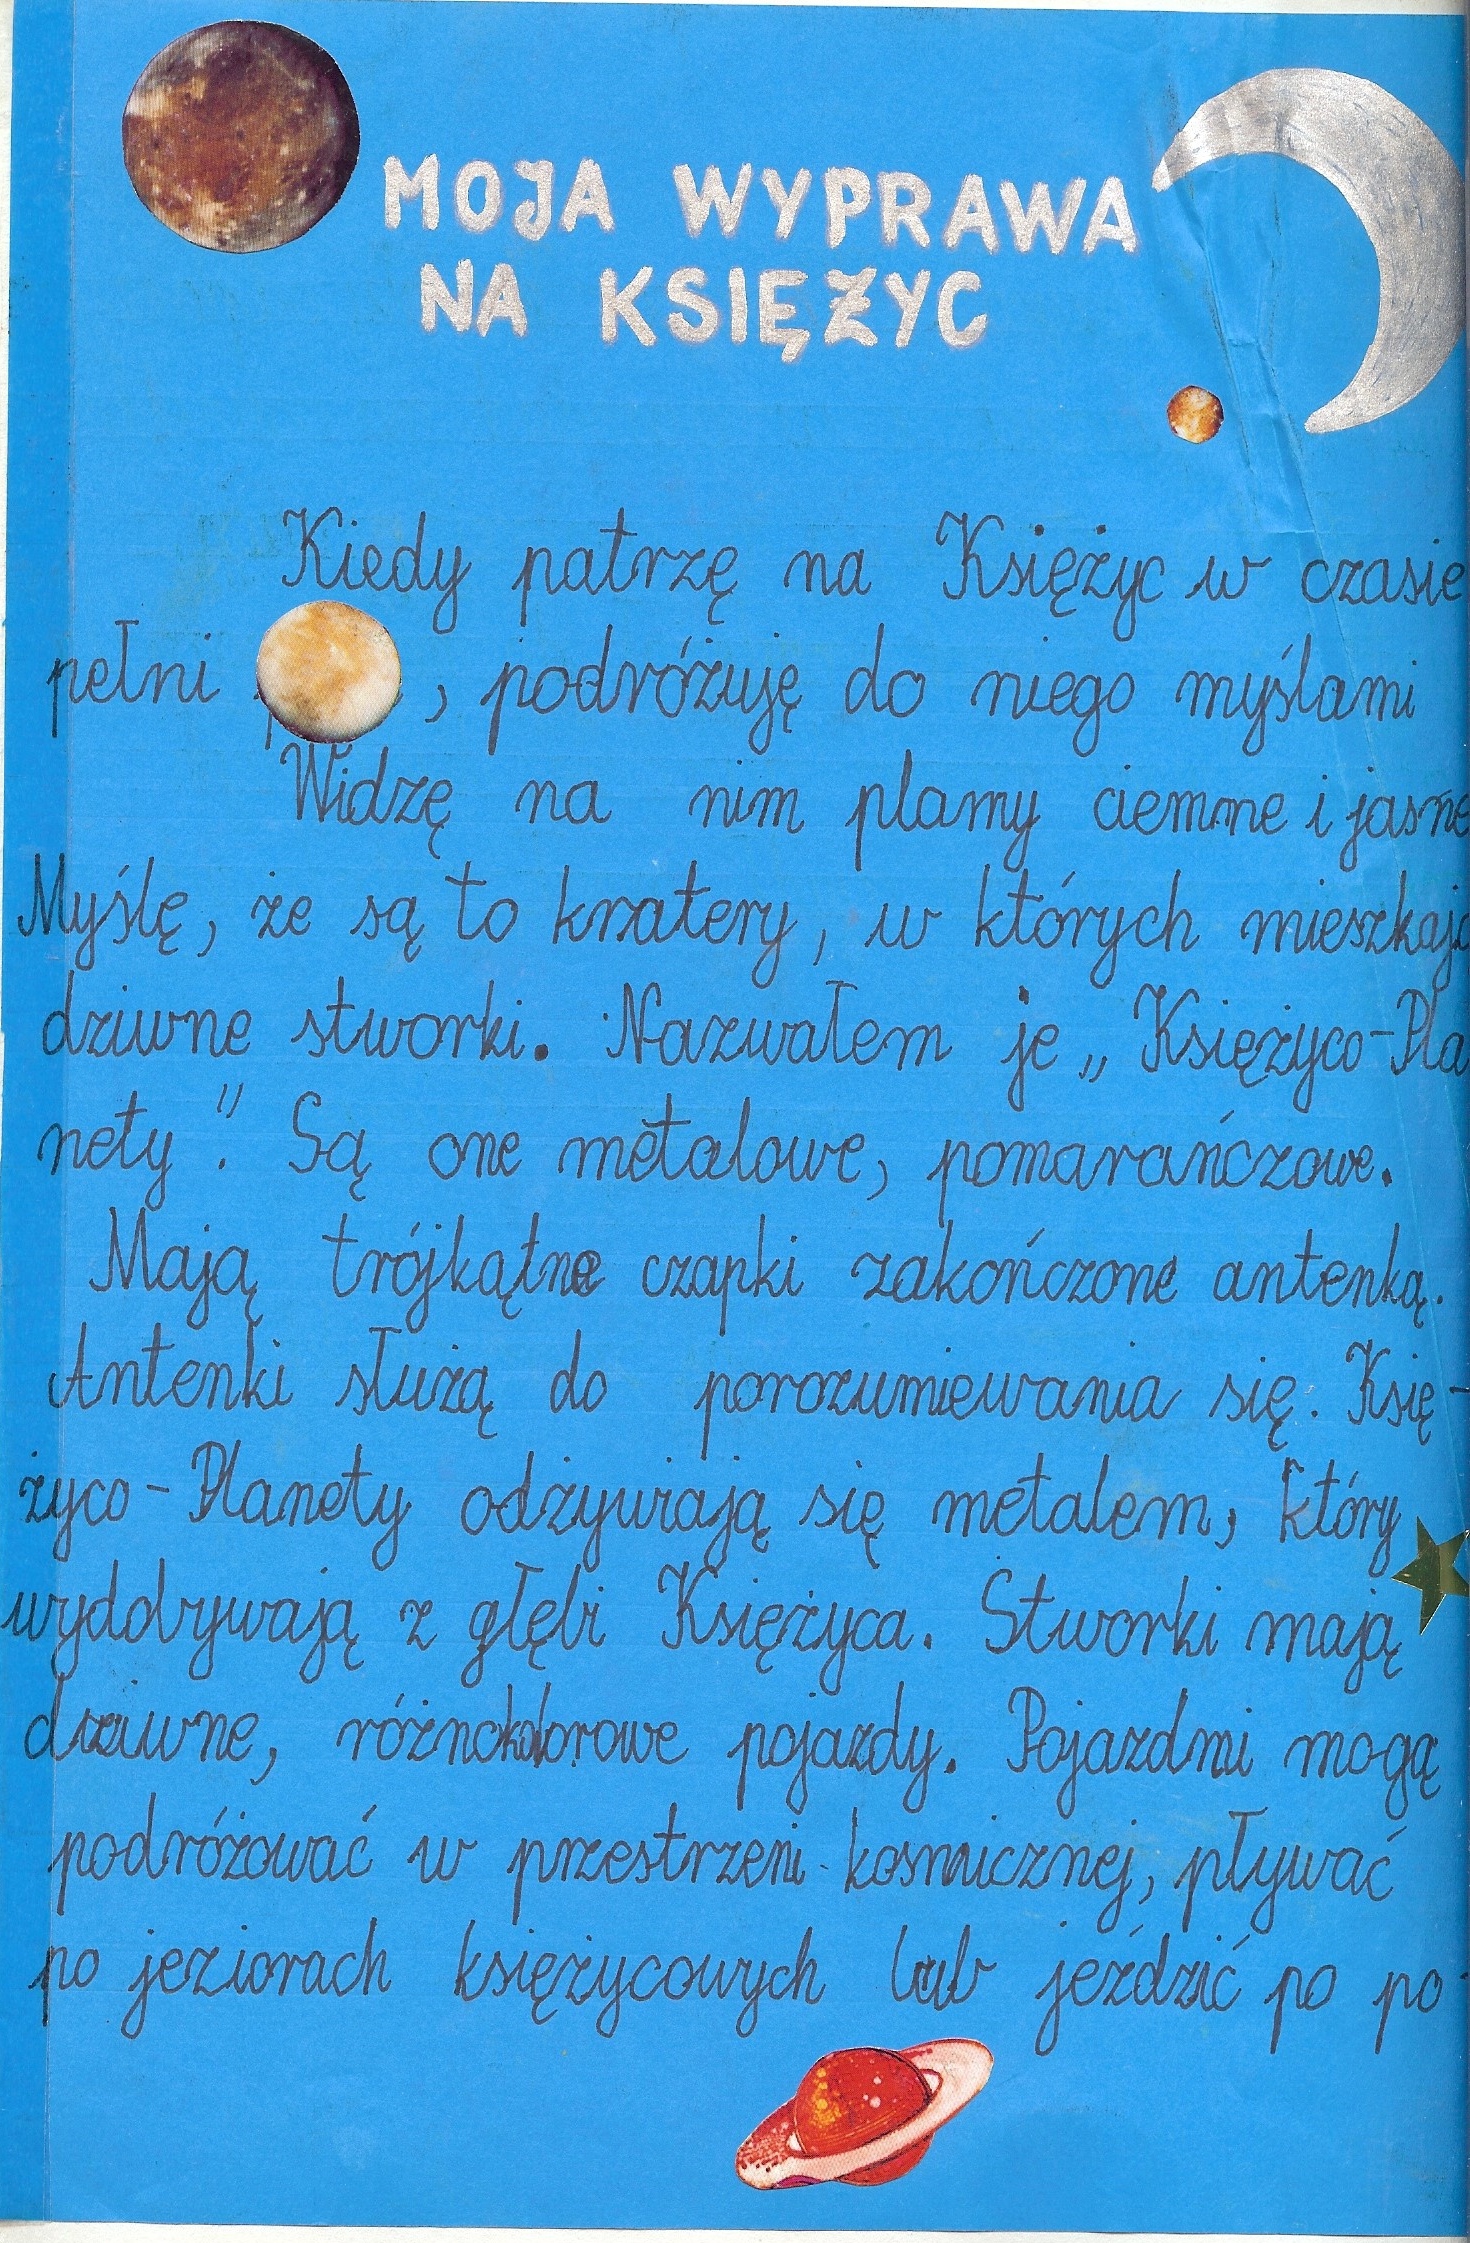 MOJA WYPRAWA
NA KSIĘŻYC
Kiedy patrzę na Księżyc w czasie
pełni , podróżuję do niego myślami
Widzę na nim plamy ciemne i jasne
Myślę, że są to kratery, w których mieszkają
dziwne stworki. Nazwałem je „Księżyco-Pla
nety". Są one metalowe, pomarańczowe.
Mają trójkątne czapki zakończone antenką.
Antenki służą do porozumiewania się. Księ-
życo-Planety odżywiają się metalem, który
wydobywają z głębi Księżyca. Stworki mają
dziwne, różnokolorowe pojazdy. Pojazdmi mogą
podróżować w przestrzeni kosmicznej, pływać
po jeziorach księżycowych lub jeździć po po-